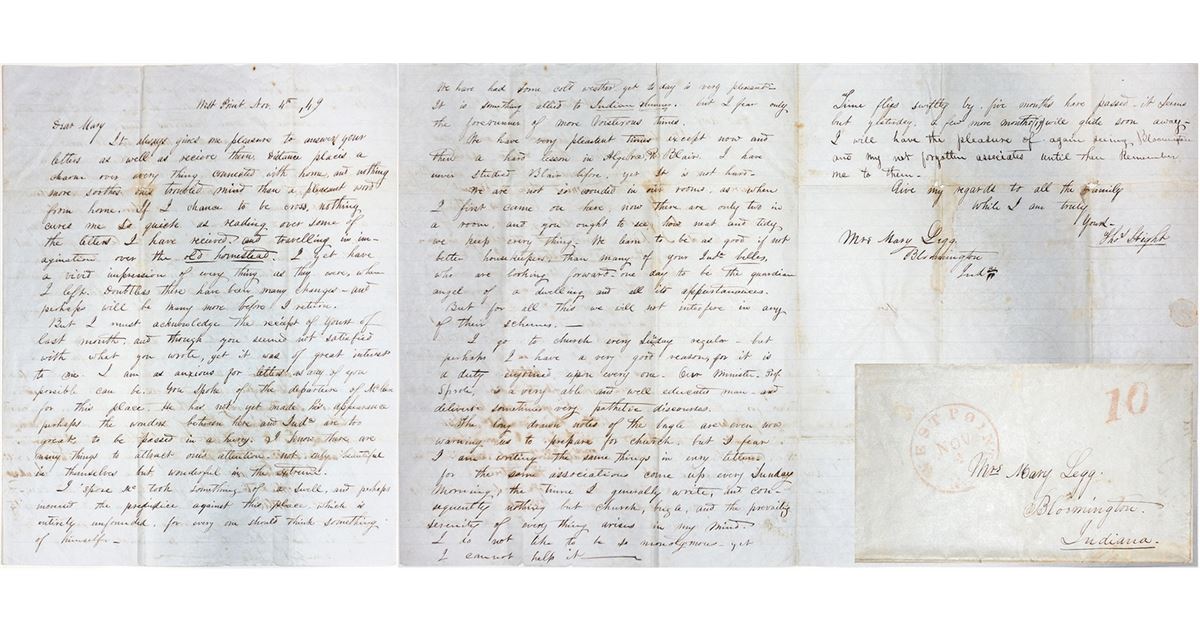 West Point Nov. 4th, 49
Dear Mary
It always gives me pleasure to answer your
letters as well as recieve them. Distance places a
charm over every thing connected with home, and nothing
more soothes ones troubled mind than a pleasant word
from home. If I chance to be cross, nothing
cures me so quick as reading over some of
the letters I have received, and travelling in im-
agination over the old homestead. I yet have
a vivid impression of every thing as they were, when
I left. Doubtless there have been many changes - and
perhaps will be many more before I return.
But I must acknowledge the reciept of yours of
last month, and though you seemed not satisfied
with what you wrote, yet it was of great interest
to me. I am as anxious for letters as any of you
possible can be. You spoke of the departure of
for this place. He has not yet made his appearance
perhaps the wonders between here and Inda are too
great, to be passed in a hurry. I know there are
many things to attract ones attention not only beautiful
in themselves but wonderful in the extreme.
I 'spose Mc took something of a swell, and perhaps
increast the prejudice against this place which is
entirely unfounded, for every one should think something
of himself -
We have had some cold weather yet to day is very pleasant -
It is something allied to Indian summer. but I fear only
the forerunner of more boisterous times.
We have very pleasant times except now and
then a hard lesson in Algebra, or Blair. I have
never studied Blair before, yet it is not hard -
We are not so crowded in our rooms, as when
I first came on here, now there are only two in
a room, and you ought to see how neat and tidy,
we keep every thing - We learn to be as good if not
better housekeepers than many of your Inda belles,
who are looking forward one day to be the guardian
angel of a dwelling and all its appurtanances.
But for all this we will not interfere in any
of their schemes. -
I go to church every Sunday regular - but
perhaps I have a very good reason, for it is
a duty enjoined upon every one. Our Minister, Prof
Sprole, is a very able and well educated man - and
delivers sometimes very pathetic discourses.
The long drawn notes of the bugle are even now
warning us to prepare for church, but I fear
I am writing the same things in every letter
for the same associations come up every Sunday
Morning, the time I generally write, and con-
sequently nothing but church, and the prevailing
serenity of every thing arises in my mind.
I do not like to be so monotonous - yet
I cannot help it
Time flies swiftly by - five months have passed - it seems
but yesterday. a few more months will glide soon away -
I will have the pleasure of again seeing Bloomington
and my not forgotten associates until then Remember
me to them -
Give my regards to all the Family
While I am truly
Yours -
Thos Wright
Mrs Mary Legg
Bloomington
Inda
10
WEST POINT
NOV
Mrs Mary Legg.
Bloomington.
Indiana.